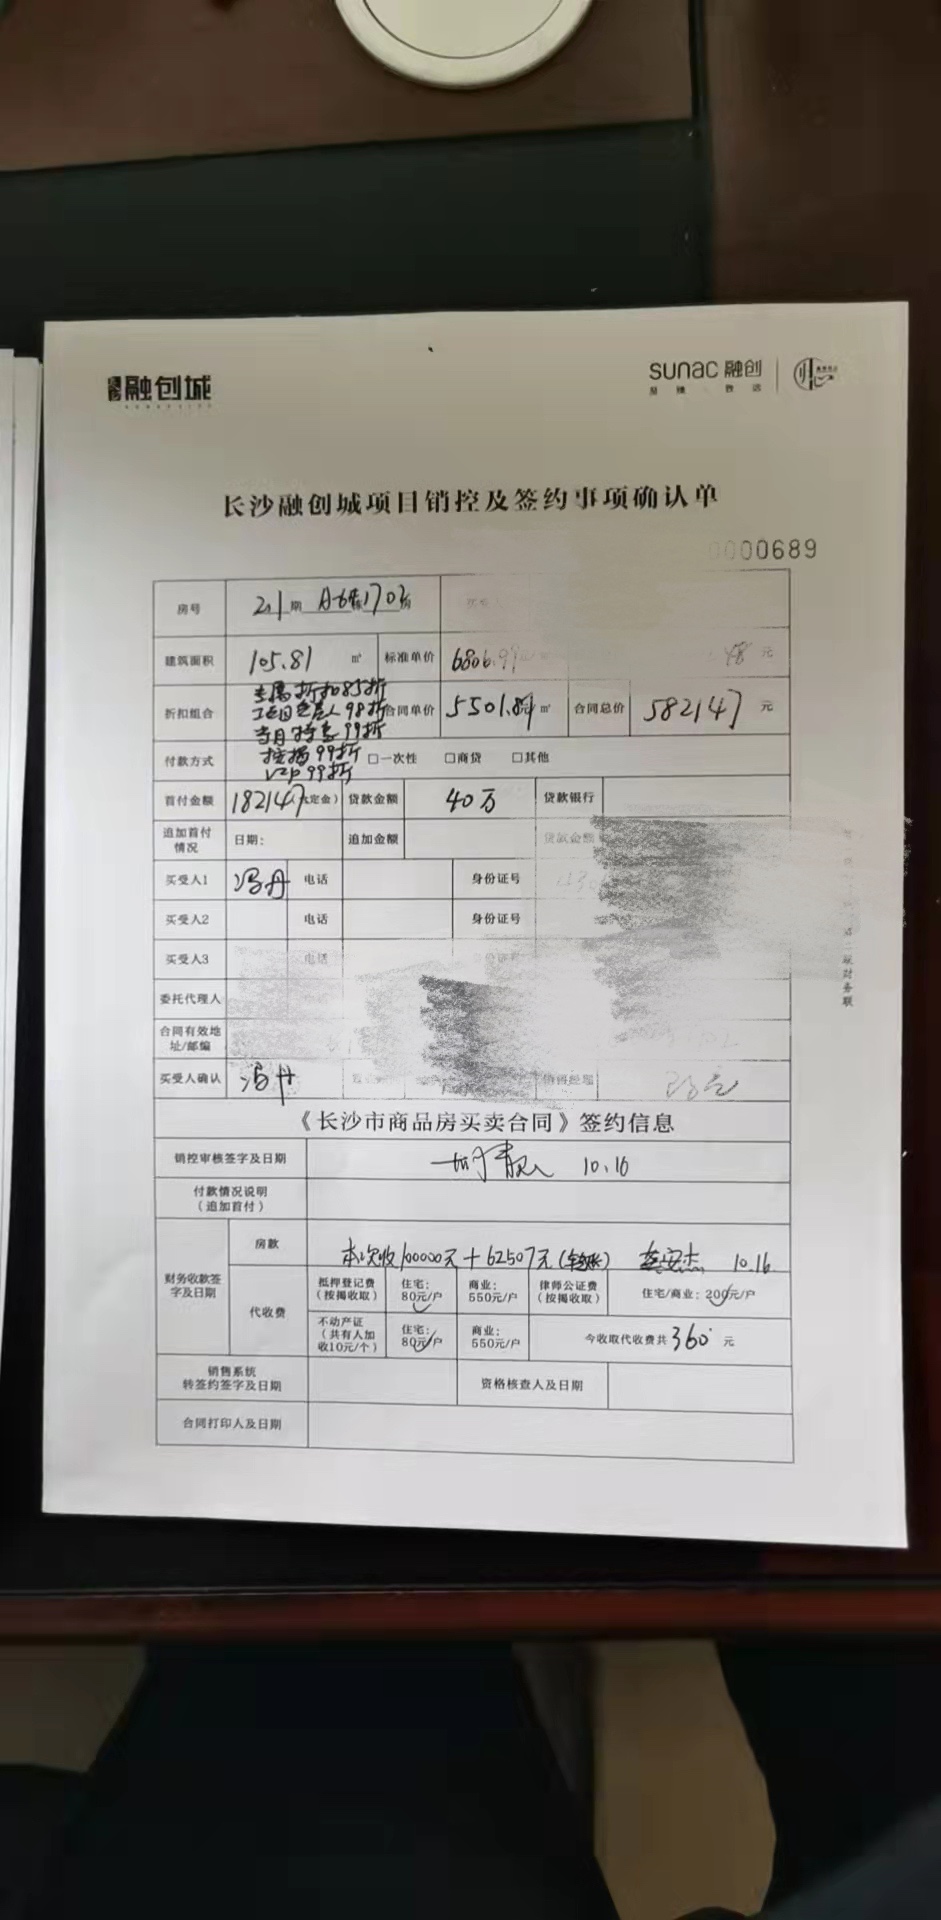 融创城
sunac 融创
至臻 致远
长沙融创城项目销控及签约事项确认单
0000689
房号 2.1期 A6栋1702房
建筑面积 105.81 ㎡ 标准单价 6806.99 元
折扣组合 专属折扣85折 合同单价 5501.81元/㎡ 合同总价 582147 元
98折
99折
付款方式 按揭99折 □一次性 □商贷 □其他
VIP 99折
首付金额 182147(含定金) 贷款金额 40万 贷款银行
追加首付情况 日期: 追加金额 贷款金额
买受人1 冯丹 电话 身份证号
买受人2 电话 身份证号
买受人3 电话 身份证号
委托代理人
合同有效地址/邮编
买受人确认 冯丹 销售经理
《长沙市商品房买卖合同》签约信息
销控审核签字及日期 10.16
付款情况说明
(追加首付)
财务收款签字及日期
房款 本次收100000元+62507元 10.16
代收费
抵押登记费(按揭收取) 住宅:80元/户 商业:550元/户 律师公证费(按揭收取) 住宅/商业:200元/户
不动产证(共有人加收10元/个) 住宅:80元/户 商业:550元/户 今收取代收费共 360 元
销售系统
转签约签字及日期 资格核查人及日期
合同打印人及日期
第二联财务联